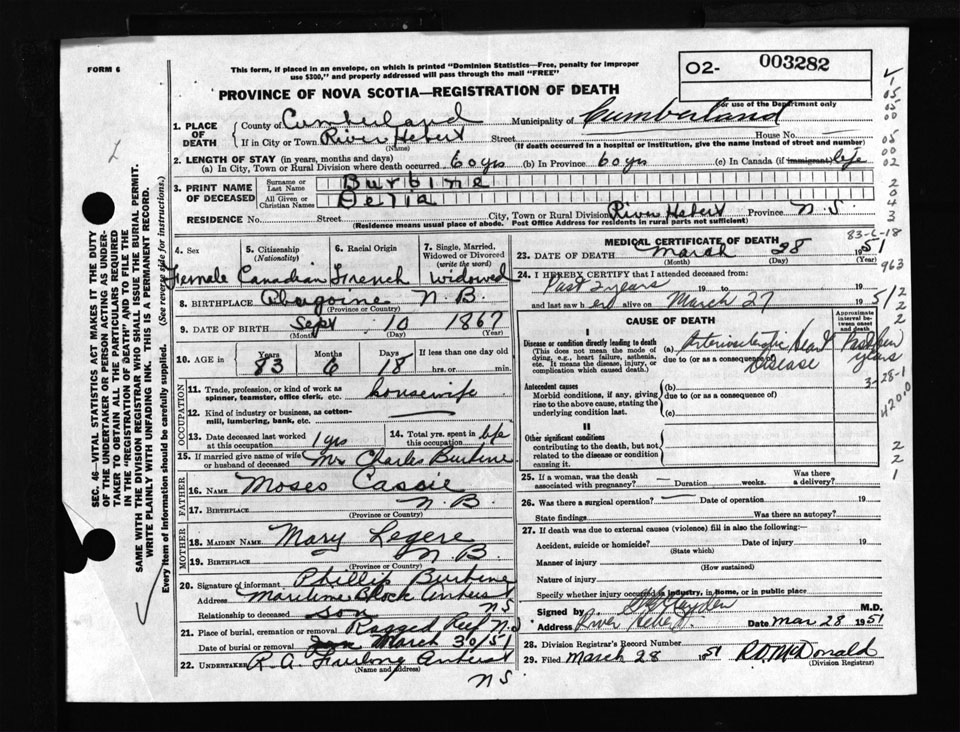 FORM 6
This form, if placed in an envelope, on which is printed "Dominion Statistics—Free, penalty for improper
use $300," and properly addressed will pass through the mail "FREE"
PROVINCE OF NOVA SCOTIA—REGISTRATION OF DEATH
02- 003282
For use of the Department only
1. PLACE OF DEATH
County of Cumberland Municipality of Cumberland
If in City or Town River Hebert Street House No. —
(Name) (If death occurred in a hospital or institution, give the name instead of street and number)
2. LENGTH OF STAY (in years, months and days)
(a) In City, Town or Rural Division where death occurred 60 yrs (b) In Province 60 yrs (c) In Canada (if immigrant) life
3. PRINT NAME OF DECEASED
Surname or Last Name Burbine
All Given or Christian Names Delia
RESIDENCE No. Street City, Town or Rural Division River Hebert Province N.S.
(Residence means usual place of abode. Post Office Address for residents in rural parts not sufficient)
4. Sex Female
5. Citizenship (Nationality) Canadian
6. Racial Origin French
7. Single, Married, Widowed or Divorced (write the word) widowed
8. BIRTHPLACE N.B.
(Province or Country)
9. DATE OF BIRTH Sept 10 1867
(Month) (Day) (Year)
10. AGE in Years 83 Months 6 Days 18 If less than one day old hrs. or min.
OCCUPATION
11. Trade, profession, or kind of work as spinner, teamster, office clerk, etc. housewife
12. Kind of industry or business, as cotton-mill, lumbering, bank, etc. —
13. Date deceased last worked at this occupation 1 yrs
14. Total yrs. spent in this occupation life
15. If married give name of wife or husband of deceased Mr Charles Burbine
FATHER
16. NAME Moses Cassie
17. BIRTHPLACE N.B.
(Province or Country)
MOTHER
18. MAIDEN NAME Mary Legere
19. BIRTHPLACE N.B.
(Province or Country)
20. Signature of informant Phillip Burbine
Address Maritime Block Amherst NS
Relationship to deceased son
21. Place of burial, cremation or removal Ragged Reef N.S
Date of burial or removal March 30/51
22. UNDERTAKER R.A. Furlong Amherst
(Name and address)
NS
MEDICAL CERTIFICATE OF DEATH
83-6-18
23. DATE OF DEATH March 28 1951
(Month) (Day) (Year)
24. I HEREBY CERTIFY that I attended deceased from:
Past 2 years 19 to 19
and last saw her alive on March 27 1951
CAUSE OF DEATH
Approximate interval between onset and death
I
Disease or condition directly leading to death
(This does not mean the mode of dying, e.g., heart failure, asthenia, etc. It means the disease, injury, or complication which caused death.)
(a) Arteriosclerotic Heart Disease
due to (or as a consequence of)
Past few years
Antecedent causes
Morbid conditions, if any, giving rise to the above cause, stating the underlying condition last.
(b)
due to (or as a consequence of)
(c)
II
Other significant conditions
contributing to the death, but not related to the disease or condition causing it.
25. If a woman, was the death associated with pregnancy? — Duration weeks. Was there a delivery?
26. Was there a surgical operation? — Date of operation 19
State findings Was there an autopsy?
27. If death was due to external causes (violence) fill in also the following:—
Accident, suicide or homicide? Date of injury 19
(State which)
Manner of injury
(How sustained)
Nature of injury
Specify whether injury occurred in industry, in home, or in public place
Signed by M.D.
Address River Hebert Date Mar 28 1951
28. Division Registrar's Record Number
29. Filed March 28 1951 R.D. McDonald
(Division Registrar)
SEC. 46—VITAL STATISTICS ACT MAKES IT THE DUTY
OF THE UNDERTAKER OR PERSON ACTING AS UNDER-
TAKER TO OBTAIN ALL THE PARTICULARS REQUIRED
IN THE "REGISTRATION OF DEATH" AND TO FILE THE
SAME WITH THE DIVISION REGISTRAR WHO SHALL ISSUE THE BURIAL PERMIT.
WRITE PLAINLY WITH UNFADING INK. THIS IS A PERMANENT RECORD.
Every item of information should be carefully supplied. (See reverse side for instructions.)
1
05
05
00
05
00
02
2
0
4
3
963
2
2
2
3-28-1
4200
2
2
1